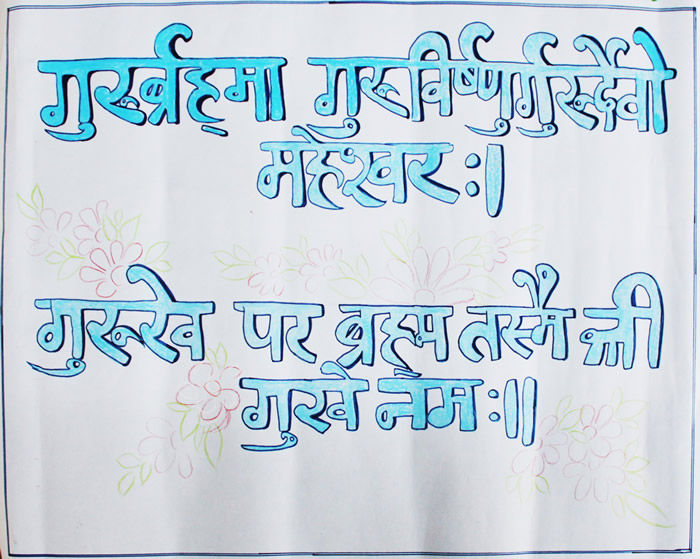 गुरूर्ब्रह्मा गुरूर्विर्ष्णुर्गुरूर्देवो
महेश्वरः।
गुरूरेव पर ब्रह्म तस्मै श्री
गुरवे नमः॥